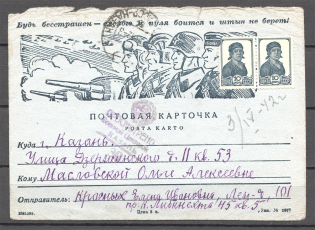 Будь бесстрашен — смелого и пуля боится и штык не берет!
3/IV-42 г
ПОЧТОВАЯ КАРТОЧКА
POSTA KARTO
Куда г. Казань,
Улица Дзержинского д. 11 кв. 53
Кому Масловской Ольге Алексеевне
Отправитель: Красных Елена Ивановна, Лен-д, 101
пр. К. Либкнехта 45 кв. 5
Цена 5 к.